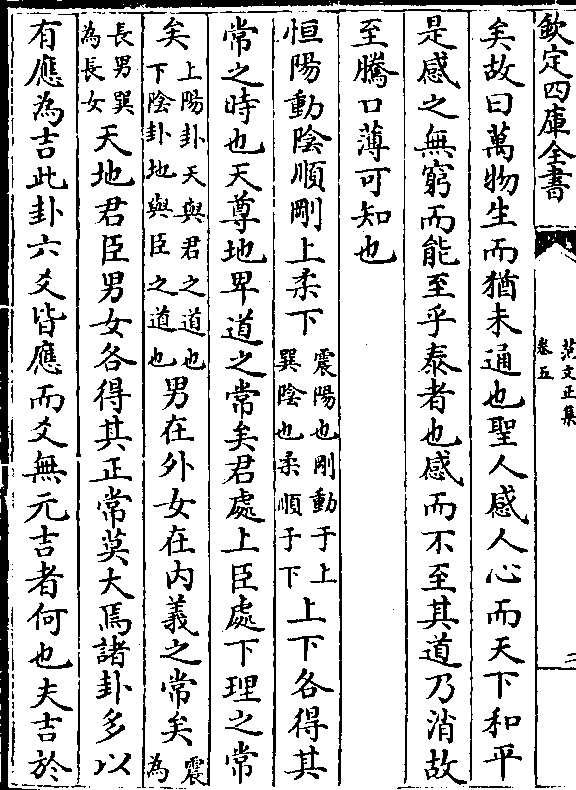 欽定四庫全書
范文正集
卷五
二
矣故曰萬物生而猶未通也聖人感人心而天下和平
是感之無窮而能至乎泰者也感而不至其道乃消故
至騰口薄可知也
恒陽動陰順剛上柔下震陽也剛動于上巽陰也柔順于下上下各得其
常之時也天尊地卑道之常矣君處上臣處下理之常
矣上陽卦天與君之道也下陰卦地與臣之道也男在外女在内義之常矣震為
長男巽為長女天地君臣男女各得其正常莫大焉諸卦多以
有應為吉此卦六爻皆應而爻無元吉者何也夫吉於